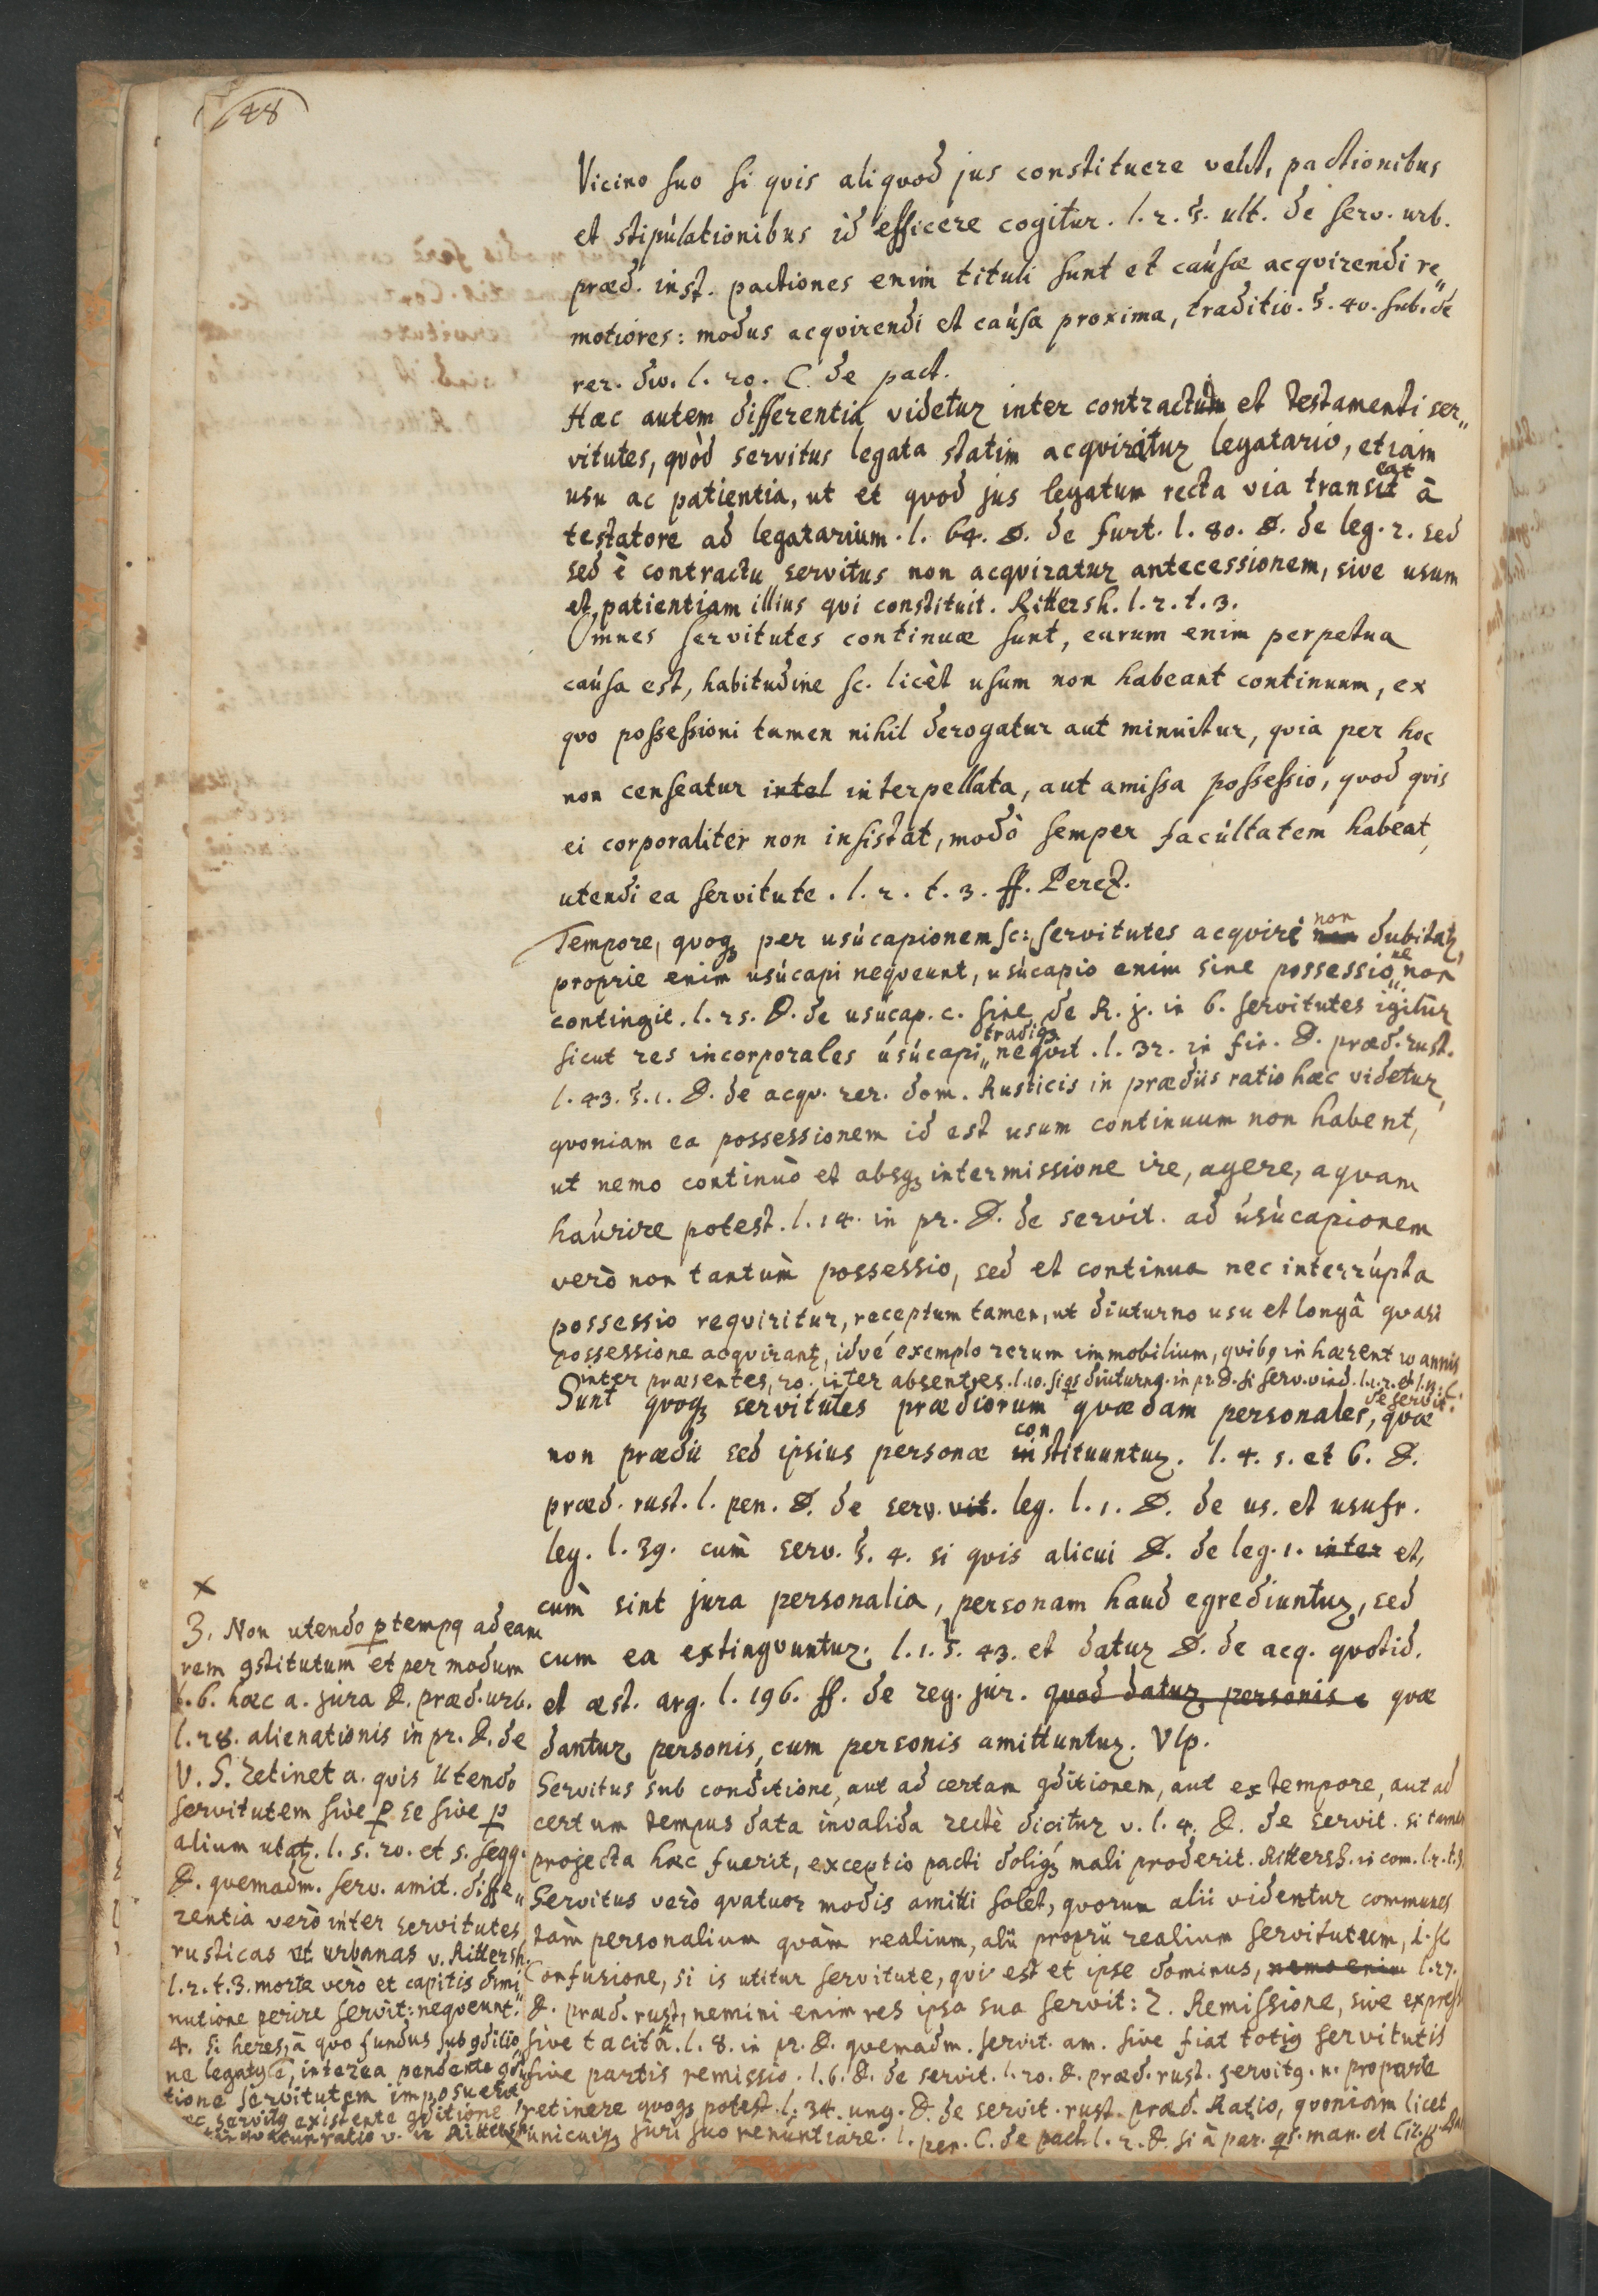 48
Vicino suo si qvis aliqvod jus constituere velit, pactionibus
et stipulationibus id efficere cogitur. l. 2. §. ult. de serv. urb.
præd. inst. pactiones enim tituli sunt et causæ acqvirendi re„
motiores: modus acqvirendi et causa proxima, traditio. §. 40. sub. de
rer. div. l. 20. C. de pact.
Hæc autem differentia videtur inter contractum et testamenti ser„
vitutes, qvòd servitus legata statim acqviratur legatario, etiam
usu ac patientia, ut et qvod jus legatum recta via transeat à
testatore ad legatarium. l. 64. D. de furt. l. 80. D. de leg. 2. sed
sed è contractu servitus non acqviratur antecessionem, sive usum
et patientiam illius qvi constituit. Rittersh. l. 2. t. 3.
Omnes servitutes continuæ sunt, earum enim perpetua
causa est, habitudine sc. licèt usum non habeant continuum, ex
qvo possessioni tamen nihil derogatur aut minuitur, qvia per hoc
non censeatur intel interpellata, aut amissa possessio, qvod qvis
ei corporaliter non insistat, modò semper facultatem habeat,
utendi ea servitute. l. 2. t. 3. ff. Perez.
Tempore, qvoq; per usucapionem sc: servitutes acqviri non dubitatz,
proprie enim usucapi neqveunt, usucapio enim sine possessione non
contingit. l. 25. D. de usucap. c. sine de R. j. in 6. servitutes igitur
sicut res incorporales usucapi „ tradiq; neqvit. l. 32. in fin. D. præd. rust.
l. 43. §. 1. D. de acqv. rer. dom. Rusticis in prædiis ratio hæc videtur,
qvoniam ea possessionem id est usum continuum non habent,
ut nemo continuò et absq; intermissione ire, agere, aqvam
haurire potest. l. 14. in pr. D. de servit. ad usucapionem
verò non tantùm possessio, sed et continua nec interrupta
possessio reqviritur, receptum tamen, ut diuturno usu et longâ qvasi
possessione acqvirantz, idvé exemplo rerum immobilium, qvib9 inhærent 10 annis
inter præsentes, 20. inter absentes. l. 10. si qs diuturno. in pr. D. si serv. vind. l. 1. 2. et l. n. C.
de servit.
Sunt qvoq; servitutes prædiorum qvædam personales, qvæ
non prædii sed ipsius personæ constituuntur. l. 4. 5. et 6. D.
præd. rust. l. pen. D. de serv. vit. leg. l. 1. D. de us. et usufr.
leg. l. 39. cum serv. §. 4. si qvis alicui D. de leg. 1. inter et,
cùm sint jura personalia, personam haud egrediuntur, sed
cum ea extingvuntur. l. 1. §. 43. et datur D. de acq. qvotid.
et æst. arg. l. 196. ff. de reg. jur. qvod datur personis e qvæ
dantur personis, cum personis amittuntur. Vlp.
Servitus sub conditione, aut ad certam 9ditionem, aut ex tempore, aut ad
certum tempus data invalida rectè dicitur v. l. 4. D. de servit. si tamen
projecta hæc fuerit, exceptio pacti doliq; mali proderit. Rittersh. in com. l. 2. t. 3.
Servitus verò qvatuor modis amitti solet, qvorum alii videntur communes
tàm personalium qvàm realium, alii proprii realium servitutum, 1. sc
Confusione, si is utitur servitute, qvi est et ipse dominus, nemo enim l. 27.
D. præd. rust, nemini enim res ipsa sua servit: 2. Remissione, sive express
sive tacitâ. l. 8. in pr. D. qvemadm. servit. am. sive fiat toti9 servitutis
sive partis remissio. l. 6. D. de servit. l. 20. D. præd. rust. servit9. n. pro parte
retinere qvoq; potest. l. 34. un9. D. de servit. rust. præd. Ratio, qvoniam licet
unicuiq; juri suo renuntiare. l. pen. C. de pact. l. 2. D. si à par. qs. man. et
x
3. Non utendo p temp9 ad eam
rem 9stitutum et per modum
l. 6. hæc a. jura D. præd. urb.
l. 28. alienationis in pr. D. de
V. S. retinet a. qvis utendo
servitutem sive p se sive p
alium utatz. l. 5. 20. et s. seqq.
D. qvemadm. serv. amit. diffe„
rentia verò inter servitutes
rusticas et urbanas v. Rittersh.
l. 2. t. 3. morte verò et capitis dimi
nutione perire servit: neqveunt.
4. si heres, à qvo fundus sub 9ditio„
ne legat9 ē, interea pendente 9di
tione servitutem imposuerit
hæc servit9 existente 9ditione
ratio v. in Rittersh